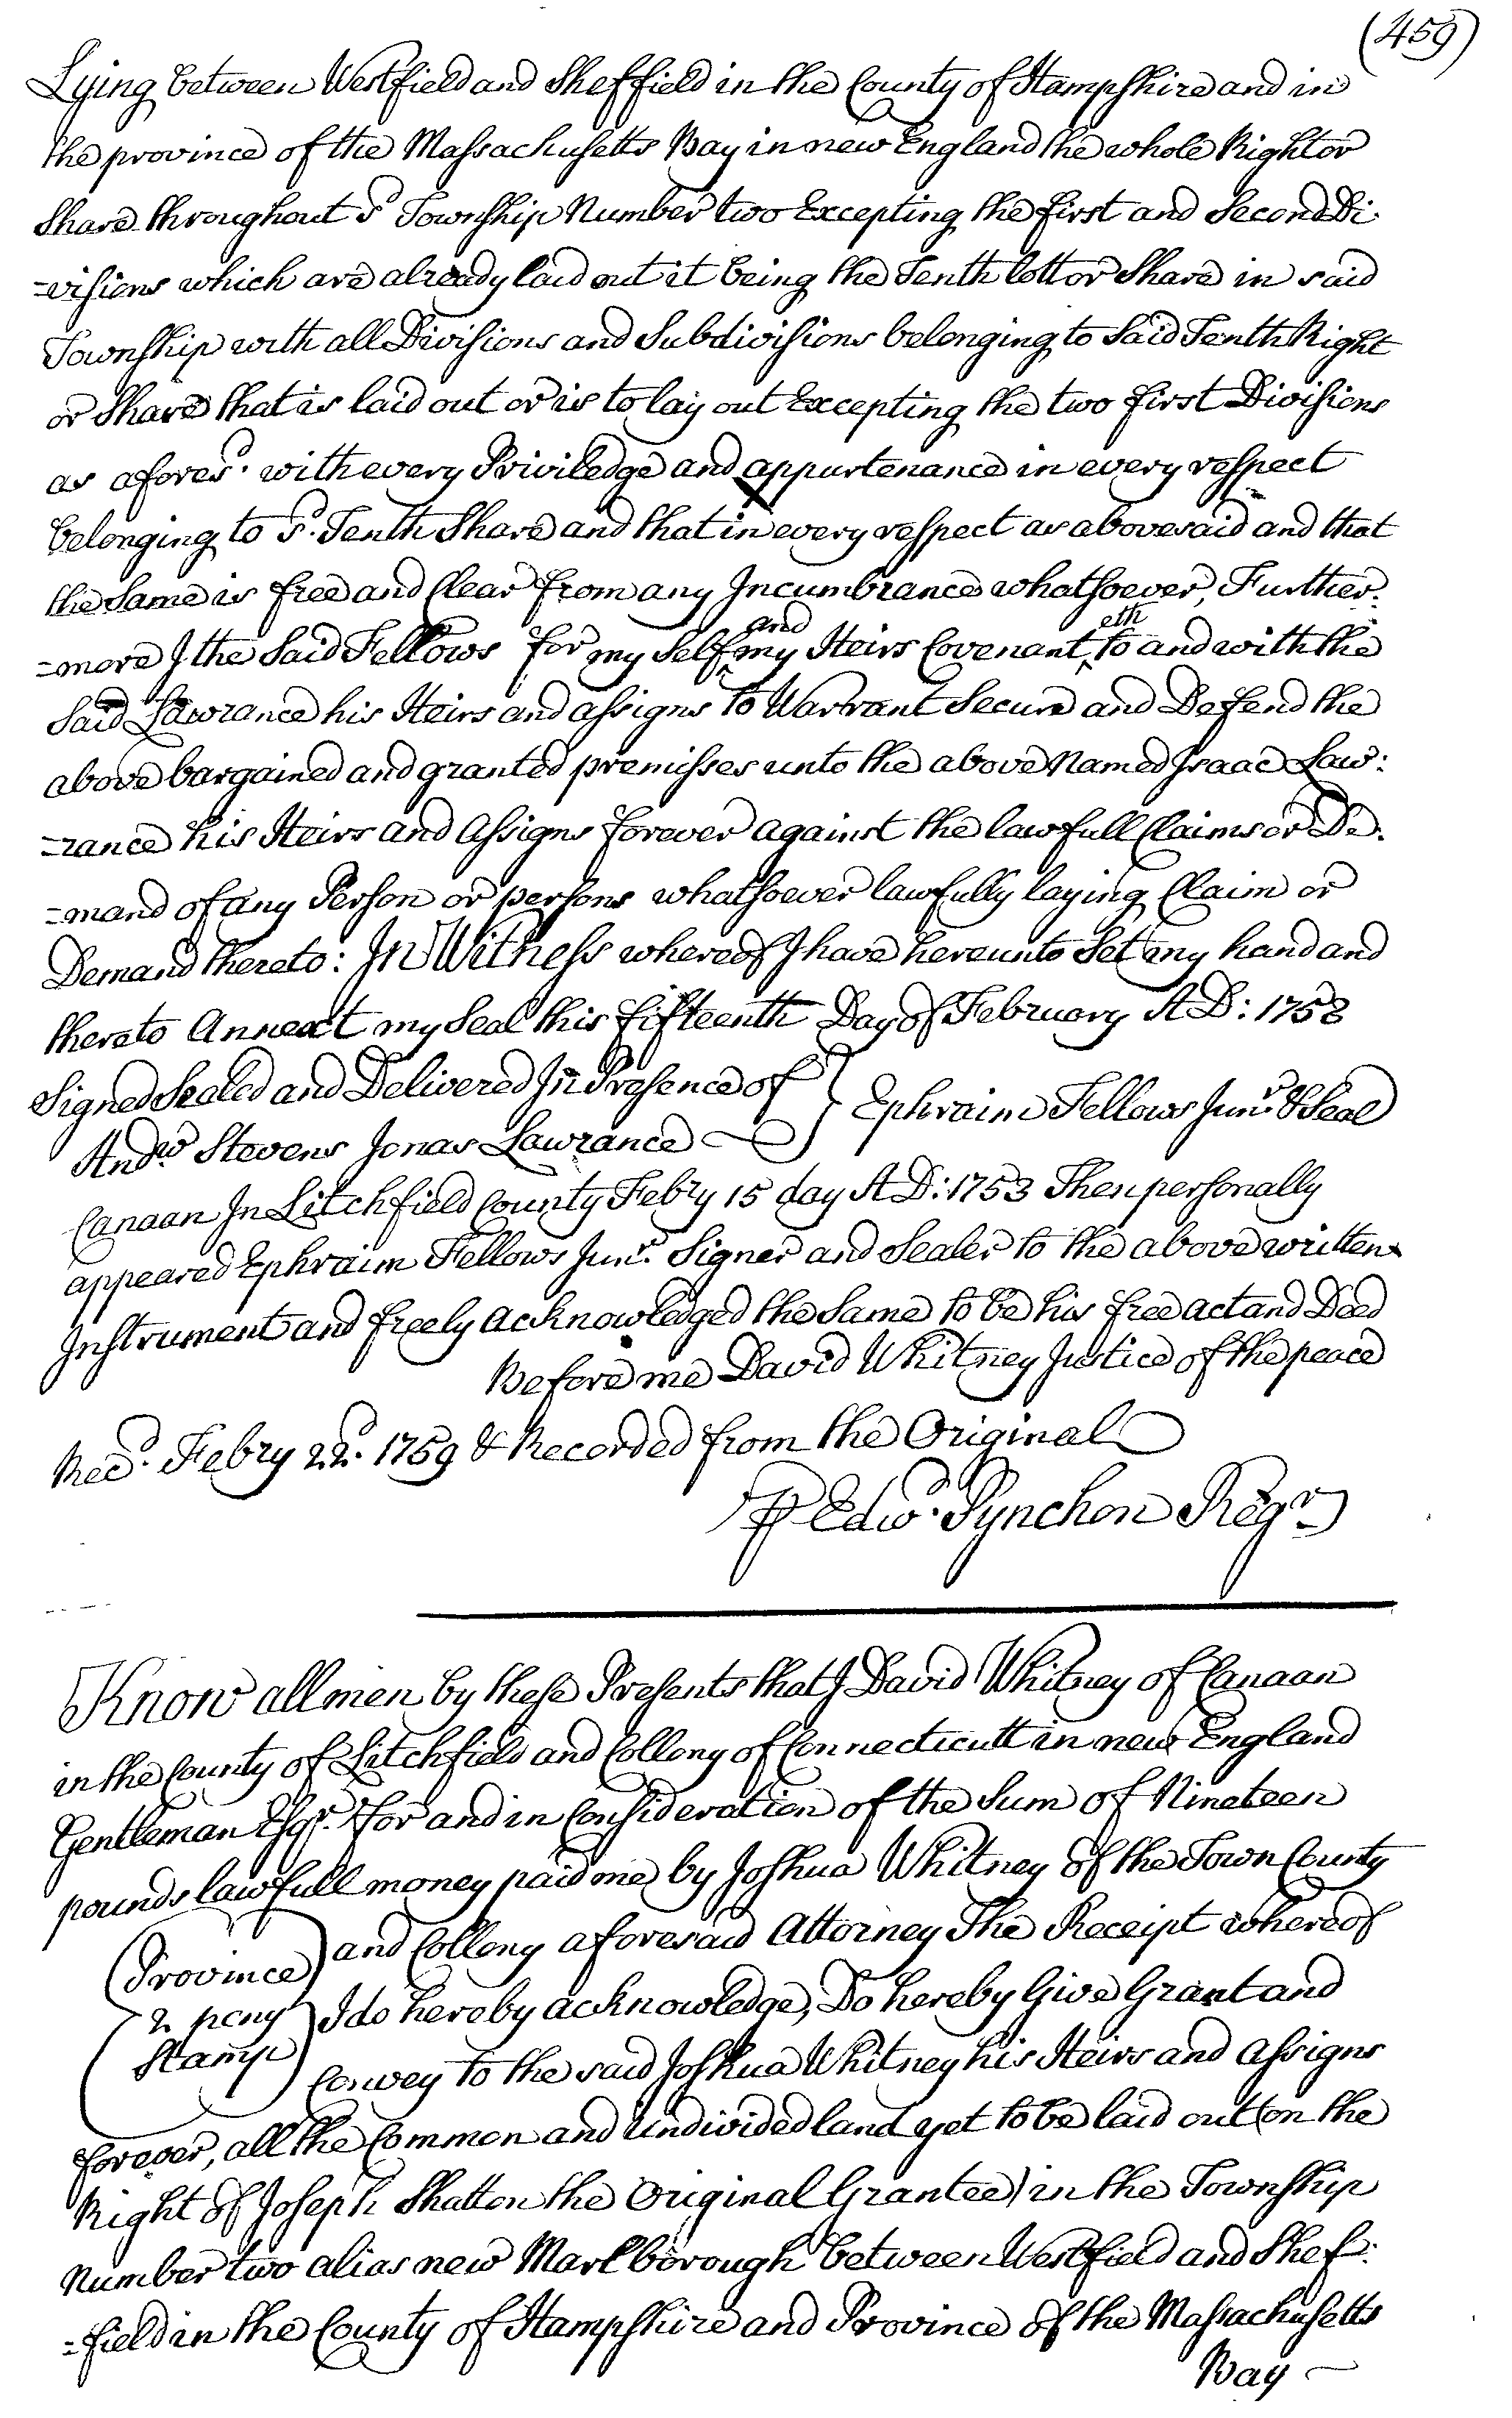 (459)
Lying between Westfield and Sheffield in the County of Hampshire and in
the province of the Massachusetts Bay in new England the whole Right or
Share throughout sd Township Number two Excepting the first and Second Di:
=visions which are already laid out it being the Tenth lott or Share in said
Township with all Divisions and Subdivisions belonging to Said Tenth Right
or Share that is laid out or is to lay out Excepting the two first Divisions
as aforesd. with every Priviledge and appurtenance in every respect
belonging to sd. Tenth Share and that in every respect as abovesaid and that
the Same is free and Clear from any Incumbrance whatsoever, Further:
=more I the Said Fellows for my Self and my Heirs Covenanteth to and with the
Said Lawrance his Heirs and assigns to Warrant Secure and Defend the
above bargained and granted premisses unto the above Named Isaac Law:
=rance his Heirs and Assigns forever against the lawfull Claims or De:
=mand of any Person or persons whatsoever lawfully laying Claim or
Demand thereto: In Witness whereof I have hereunto Set my hand and
thereto Annext my Seal this fifteenth Day of February A D: 1758
Signed Sealed and Delivered In Presence of } Ephraim Fellows Junr. & Seal
Andw Stevens Jonas Lawrance
Canaan In Litchfield County Febry 15 day A D: 1753 Then personally
appeared Ephraim Fellows Junr. Signer and Sealer to the above written
Instrument and freely acknowledged the Same to be his free act and Deed
Before me David Whitney Justice of the peace
Recd. Febry 22d. 1759 & Recorded from the Original
P Edwd. Pynchon Regr
Know all men by these Presents that I David Whitney of Canaan
in the County of Litchfield and Collony of Connecticutt in new England
Gentleman Esqr. for and in Consideration of the Sum of Nineteen
pounds lawfull money paid me by Joshua Whitney of the Town County
(Province) and Collony aforesaid Attorney The Receipt whereof
(2 peny) I do hereby acknowledge, Do hereby Give Grant and
Stamp) Convey to the said Joshua Whitney his Heirs and Assigns
forever, all the Common and Undivided land yet to be laid out (on the
Right of Joseph Shatton the Original Grantee) in the Township
Number two alias new Marlborough between Westfield and Shef:
=field in the County of Hampshire and Province of the Massachusetts
Bay